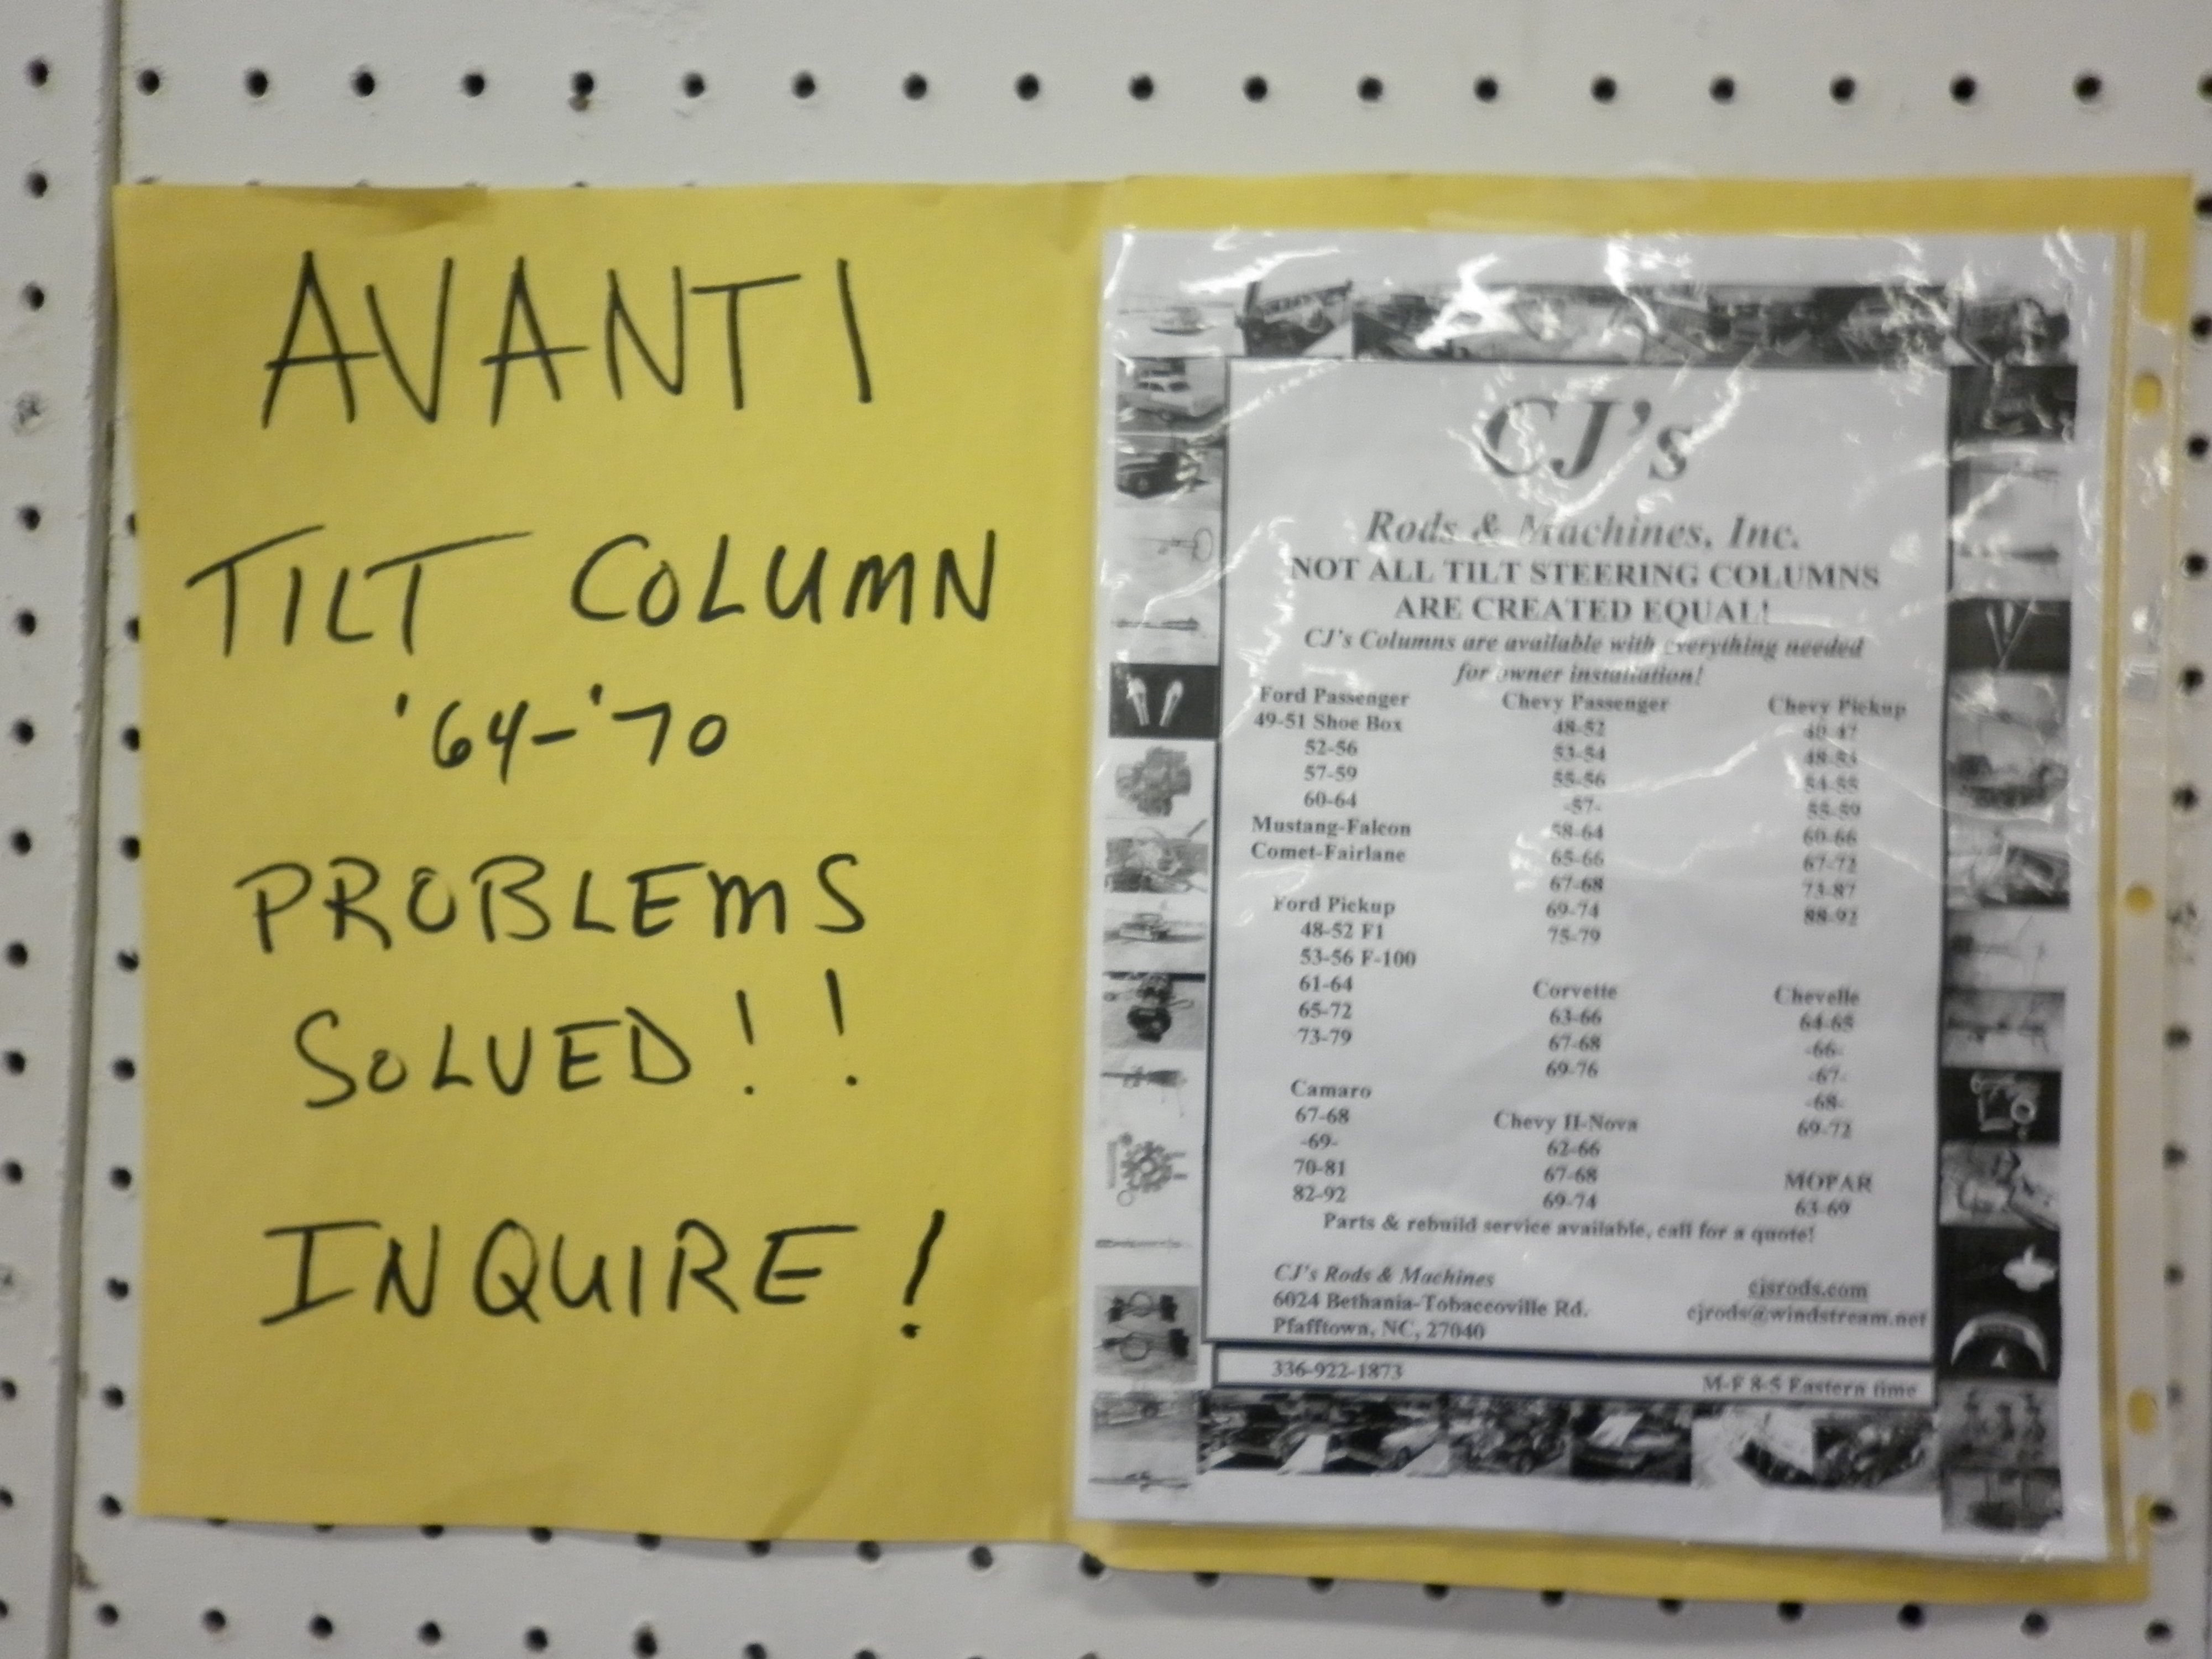 AVANTI
TILT COLUMN
'64-'70
PROBLEMS
SOLVED!!
INQUIRE!
CJ's
Rods & Machines, Inc.
NOT ALL TILT STEERING COLUMNS
ARE CREATED EQUAL!
CJ's Columns are available with everything needed
for owner installation!
Ford Passenger
49-51 Shoe Box
52-56
57-59
60-64
Mustang-Falcon
Comet-Fairlane
Ford Pickup
48-52 F1
53-56 F-100
61-64
65-72
73-79
Camaro
67-68
-69-
70-81
82-92
Chevy Passenger
48-52
53-54
55-56
-57-
58-64
65-66
67-68
69-74
75-79
Corvette
63-66
67-68
69-76
Chevy II-Nova
62-66
67-68
69-74
Chevy Pickup
40-47
48-53
54-55
55-59
60-66
67-72
73-87
88-92
Chevelle
64-65
-66-
-67-
-68-
69-72
MOPAR
63-69
Parts & rebuild service available, call for a quote!
CJ's Rods & Machines
6024 Bethania-Tobaccoville Rd.
Pfafftown, NC, 27040
cjsrods.com
cjrods@windstream.net
336-922-1873
M-F 8-5 Eastern time